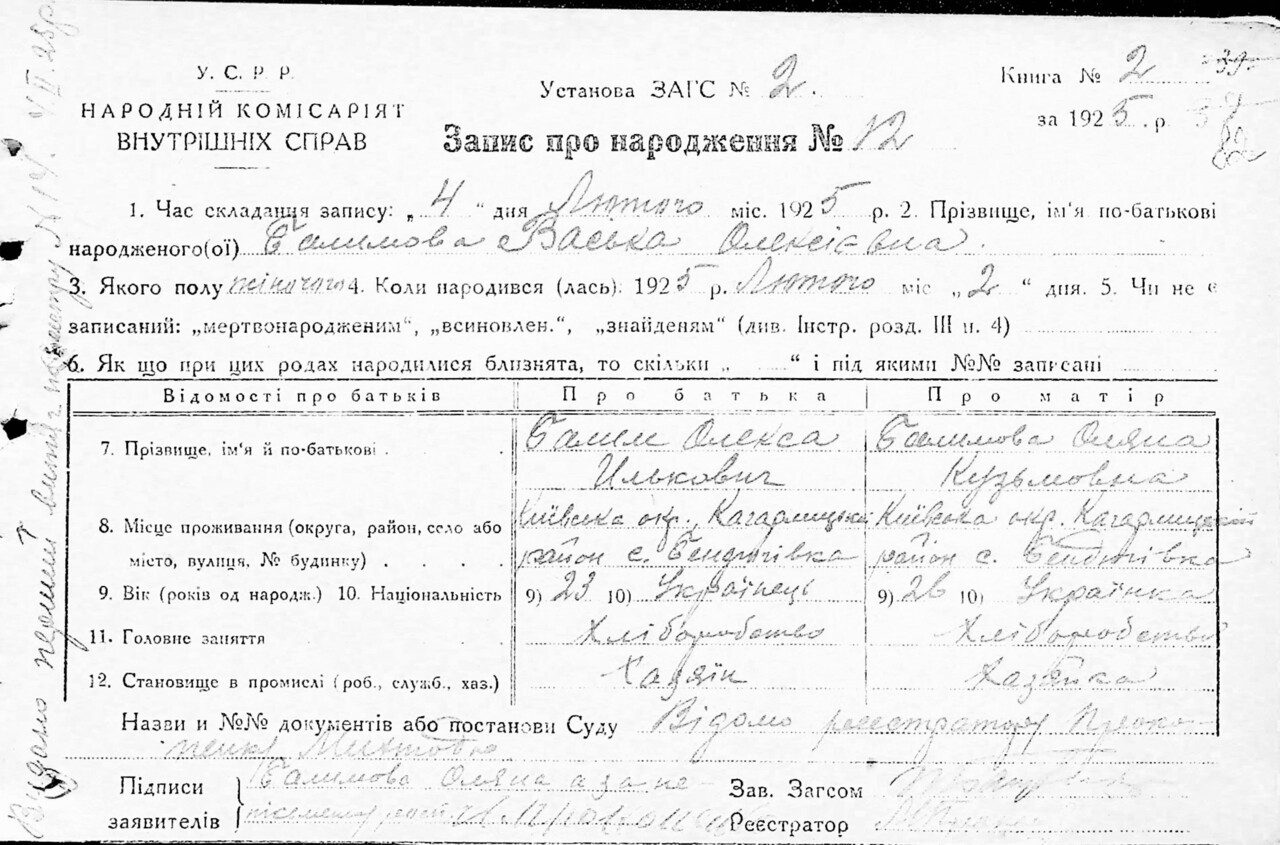 У. С. Р. Р.
НАРОДНІЙ КОМІСАРІЯТ
ВНУТРІШНІХ СПРАВ
Установа ЗАГС № 2.
Книга № 2 39.
за 1925 . р.
82
Запис про народження № 12
1. Час складання запису: „ 4 “ дня Лютого міс. 1925 р. 2. Прізвище, ім'я по-батькові
народженого(ої) Балимова Васька Олексієвна.
3. Якого полу жіночого 4. Коли народився (лась). 1925 р. Лютого міс „ 2 “ дня. 5. Чи не є
записаний: „мертвонародженим“, „всиновлен.“, „знайденям“ (див. Інстр. розд. III п. 4)
6. Як що при цих родах народилися близнята, то скільки „ “ і під якими №№ записані
Відомості про батьків Про батька Про матір
7. Прізвище, ім'я й по-батькові . . Балим Олекса Балимова Оляна
Илькович Кузьмовна
8. Місце проживання (округа, район, село або Київська окр., Кагарлицький Київська окр. Кагарлицький
місто, вулиця, № будинку) . . . . район с. Бендюгівка район с. Бендюгівка
9. Вік (років од народж.) 10. Національність 9) 23 10) Українець 9) 26 10) Українка
11. Головне заняття Хліборобство Хліборобство
12. Становище в промислі (роб., служб., хаз.) Хазяїн Хазяйка
Назви и №№ документів або постанови Суду Відомо реєстратору Проко-
пенку
Підписи Балимова Оляна а за не
заявителів Прокопенко
Зав. Загсом
Реєстратор
Видано витяг № 14.